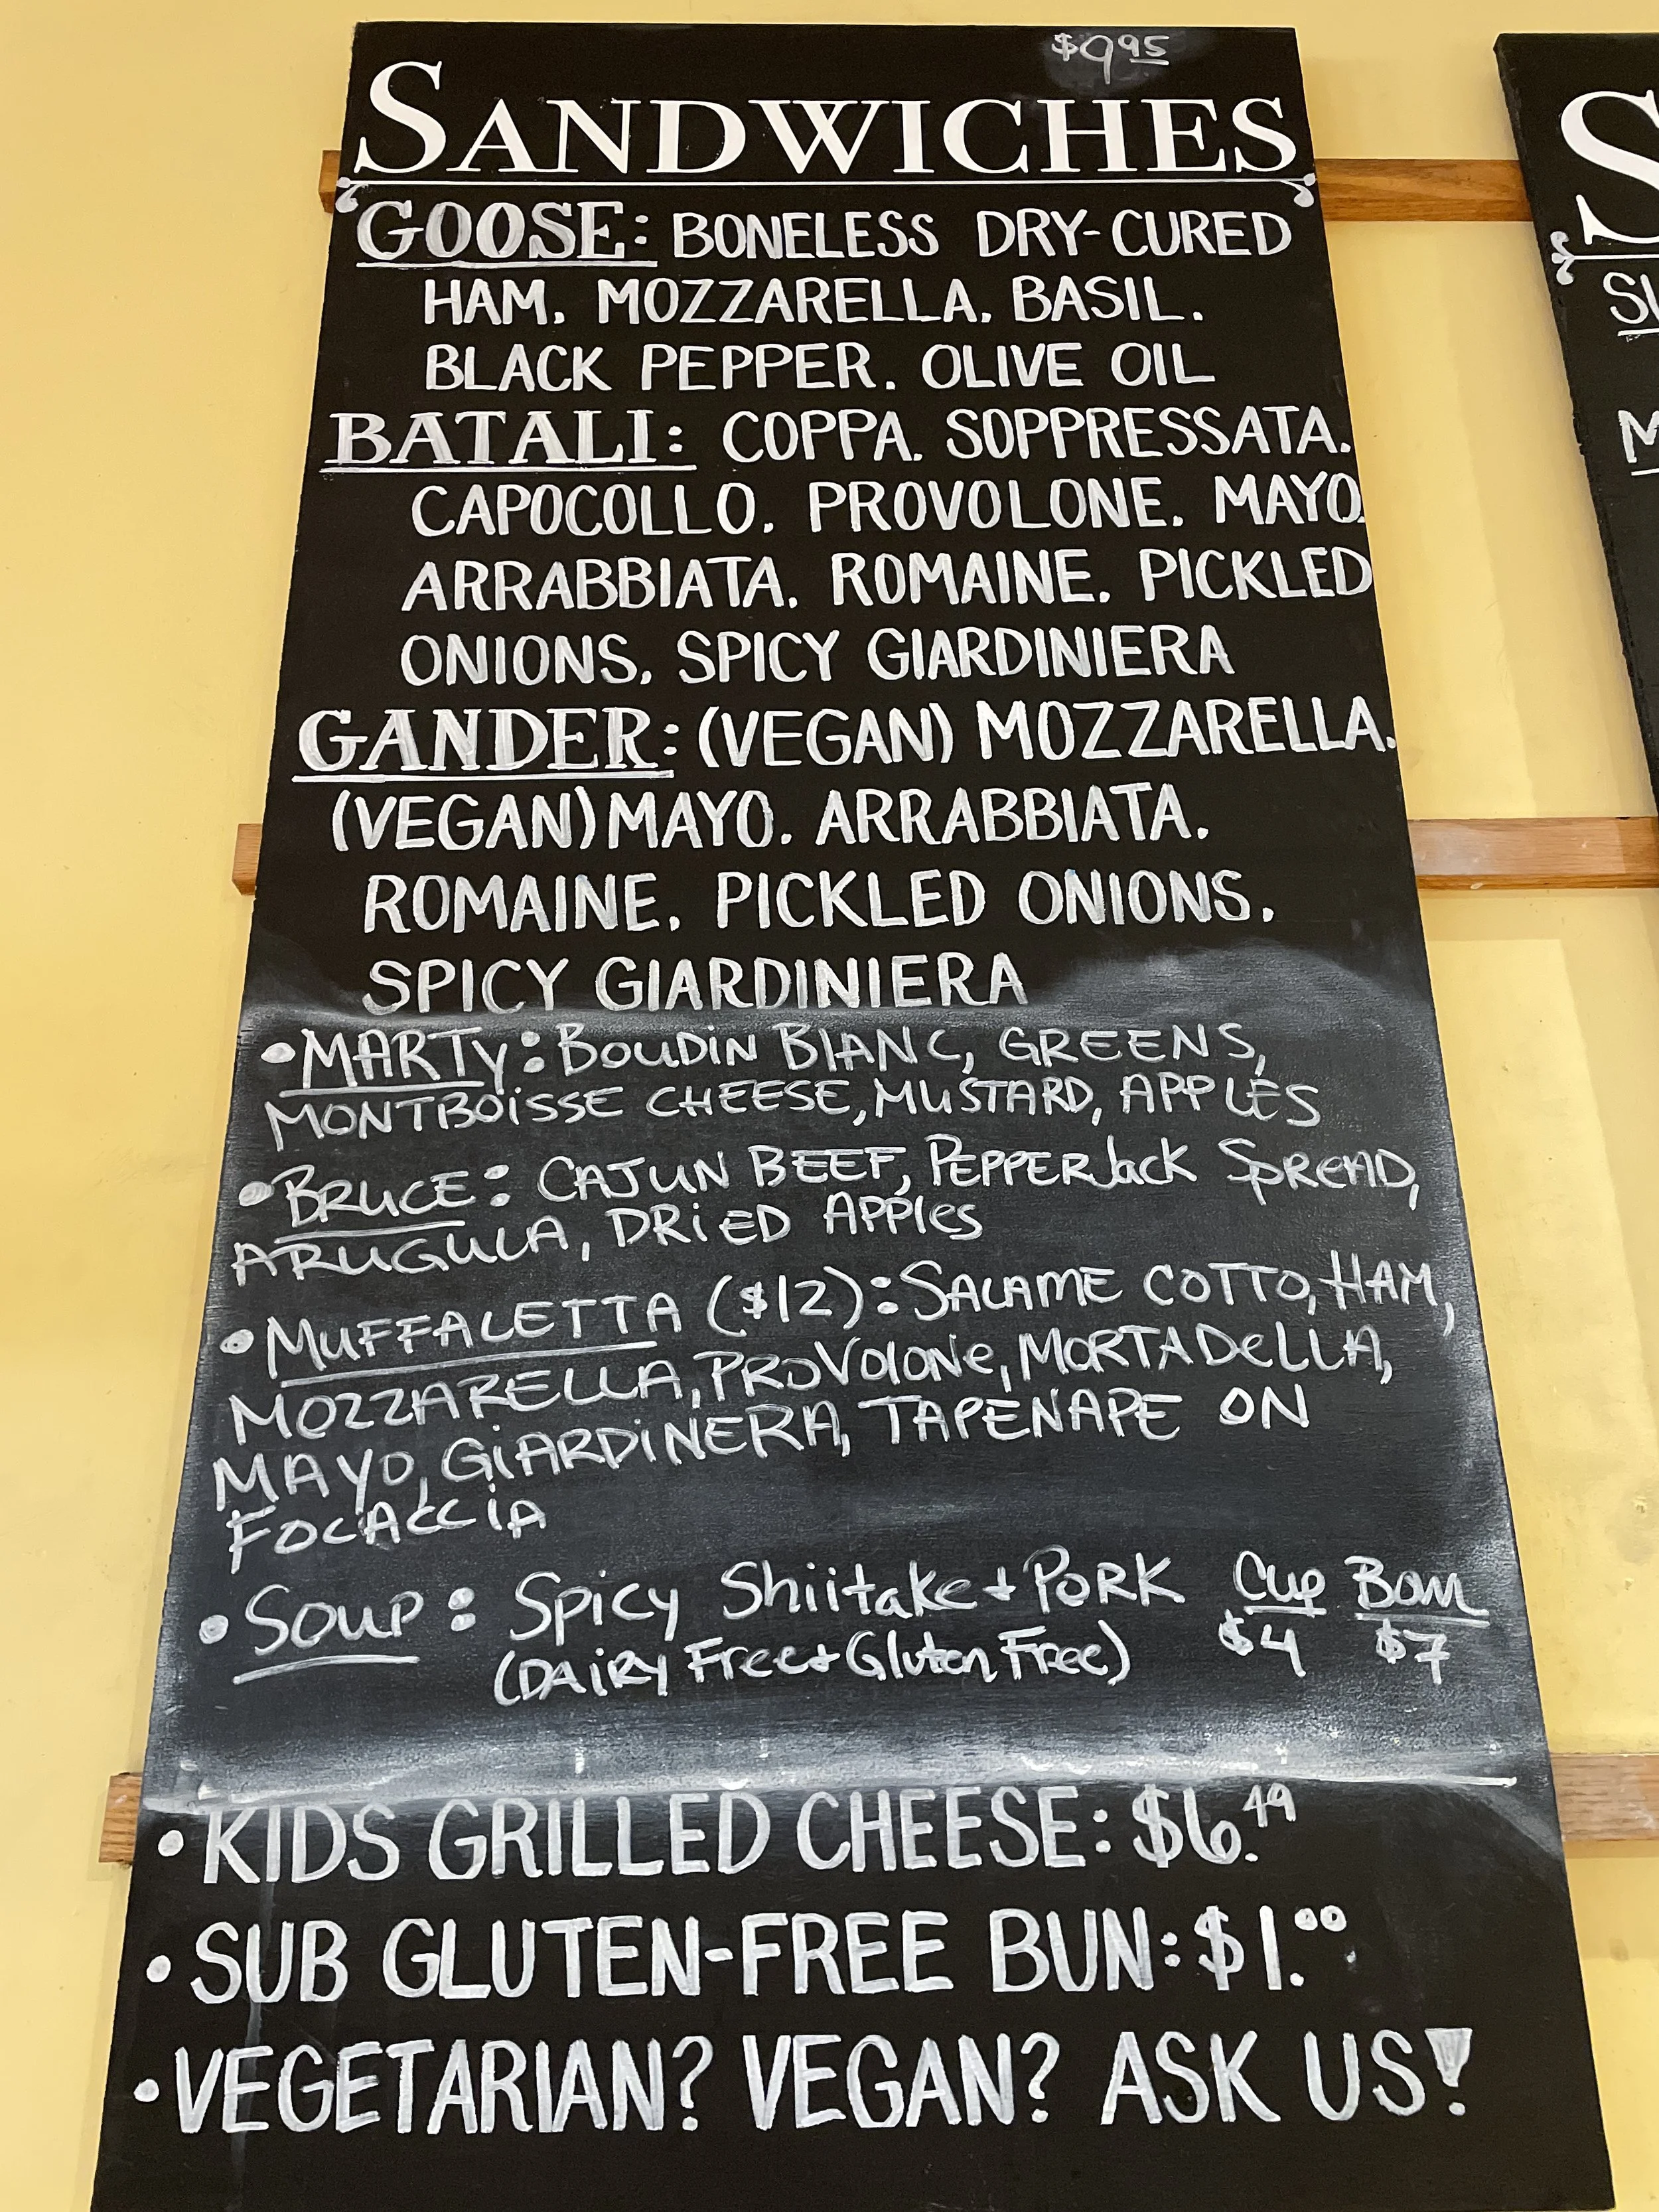 $9.95
SANDWICHES
GOOSE: BONELESS DRY-CURED
HAM. MOZZARELLA. BASIL.
BLACK PEPPER. OLIVE OIL
BATALI: COPPA. SOPPRESSATA.
CAPOCOLLO. PROVOLONE. MAYO.
ARRABBIATA. ROMAINE. PICKLED
ONIONS. SPICY GIARDINIERA
GANDER: (VEGAN) MOZZARELLA.
(VEGAN) MAYO. ARRABBIATA.
ROMAINE. PICKLED ONIONS.
SPICY GIARDINIERA
• MARTY: BOUDIN BLANC, GREENS,
MONTBOISSE CHEESE, MUSTARD, APPLES
• BRUCE: CAJUN BEEF, PEPPERJack SPREAD,
ARUGULA, DRIED APPles
• MUFFALETTA ($12): SALAME COTTO, HAM,
MOZZARELLA, PROVOlONe, MORTADeLLA,
MAYO, GIARDINERA, TAPENAPE ON
FOCACCIA
• Soup: Spicy Shiitake + PORK Cup Bowl
(DAIRY Free + Gluten Free) $4 $7
• KIDS GRILLED CHEESE: $6.49
• SUB GLUTEN-FREE BUN: $1.00
• VEGETARIAN? VEGAN? ASK US!
S